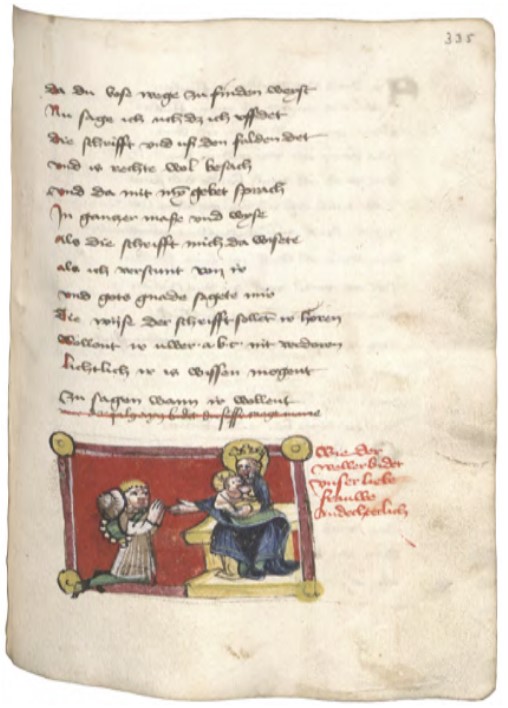 335
da du bose wege zu finden weyst
Nu sage ich uch dz ich uffdet
die schrifft und uß den falden det
und is rechte wol besach
und da mit myn gebet sprach
In gantzer maße und wyse
als die schrifft mich da wisete
als ich verstunt von ir
und gots gnade sagete mir
Die wise der schrifft sollent ir horen
Wollent ir uwer a b c nit
lichtlich ir is wissen mogent
Zu sagen wann ir wollent
Wie der
unser liebe
frauwe